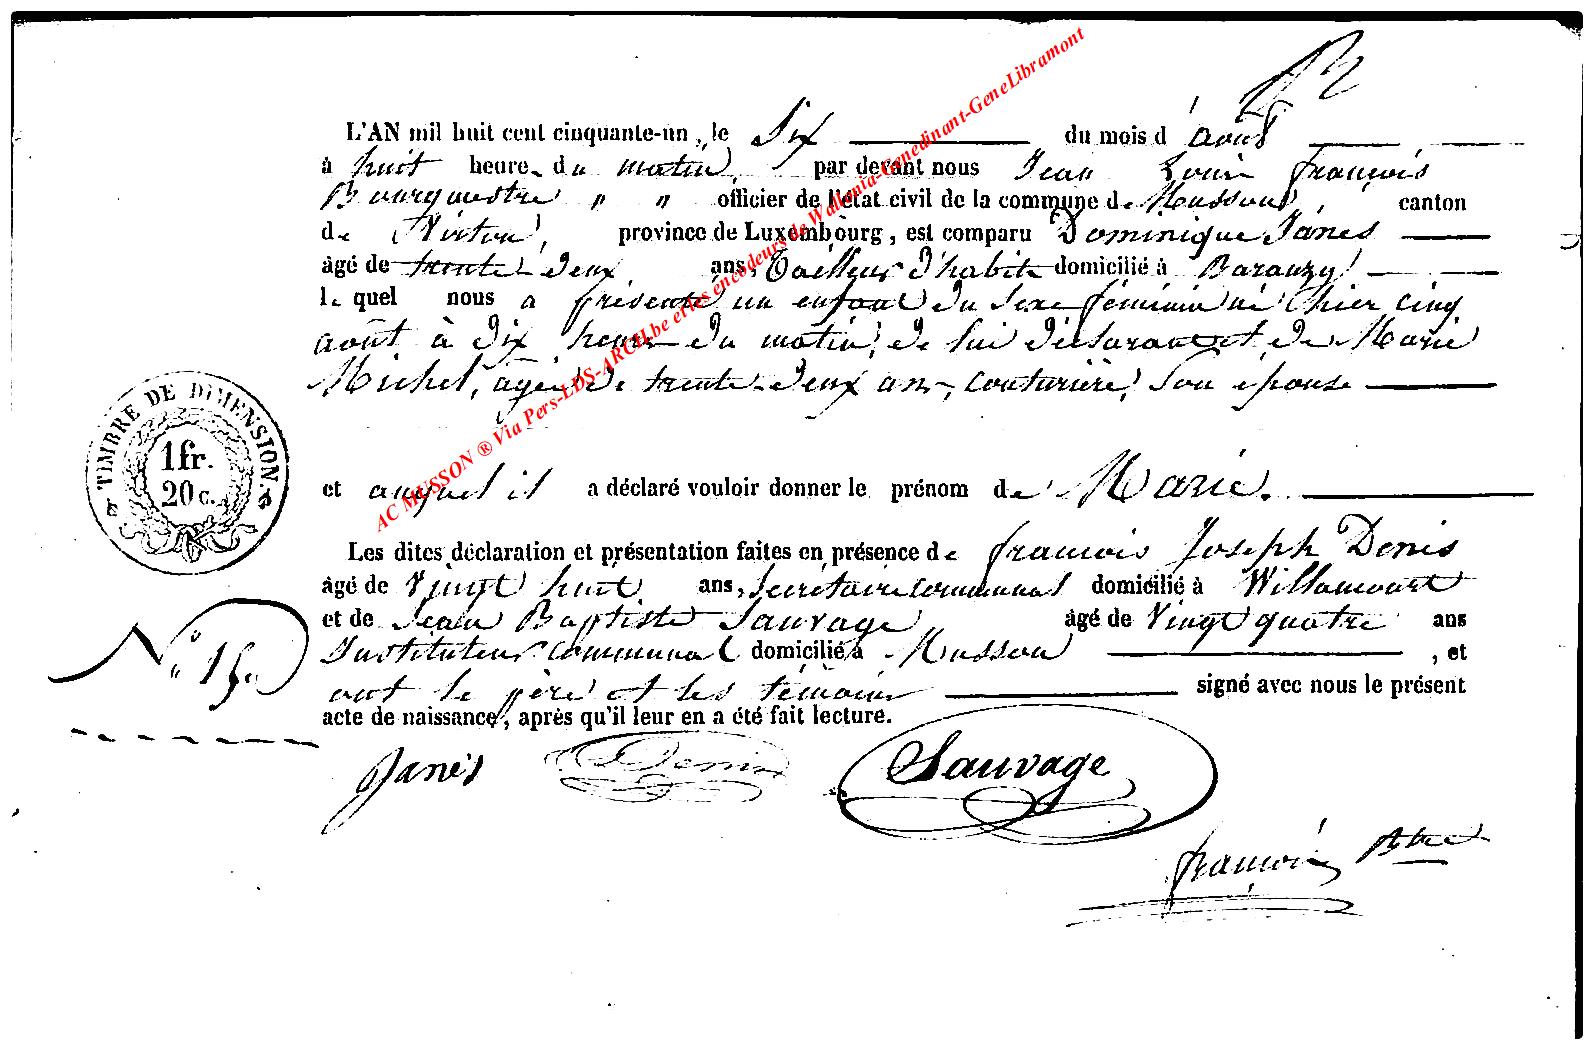 L'AN mil huit cent cinquante-un, le Six du mois d'août
à huit heure du matin, par devant nous Jean Louis François
Bourguestre " " officier de l'état civil de la commune de Musson, canton
de Virton, province de Luxembourg, est comparu Dominique Janès
âgé de trente-deux ans, Tailleur d'habit domicilié à Baranzy
le quel nous a présenté un enfant du sexe féminin né hier cinq
août à dix heure du matin, de lui déclarant, et de Marie
Michel, âgée de trente-deux ans, couturière, son épouse
TIMBRE DE DIMENSION.
1 fr.
20 c.
et auquel il a déclaré vouloir donner le prénom de Marie.
Les dites déclaration et présentation faites en présence de François Joseph Denis
âgé de Vingt huit ans, Secrétaire communal domicilié à Willancourt
et de Jean Baptiste Sauvage, âgé de Vingt quatre ans
Instituteur communal domicilié à Musson, et
N° 15.
ont le père et les témoins signé avec nous le présent
acte de naissance, après qu'il leur en a été fait lecture.
Janès Denis Sauvage
François Btre
AC MUSSON ® Via Pers-LDS-ARCH.be et les encodeurs de Wallonia-Genedinant-GeneLibramont